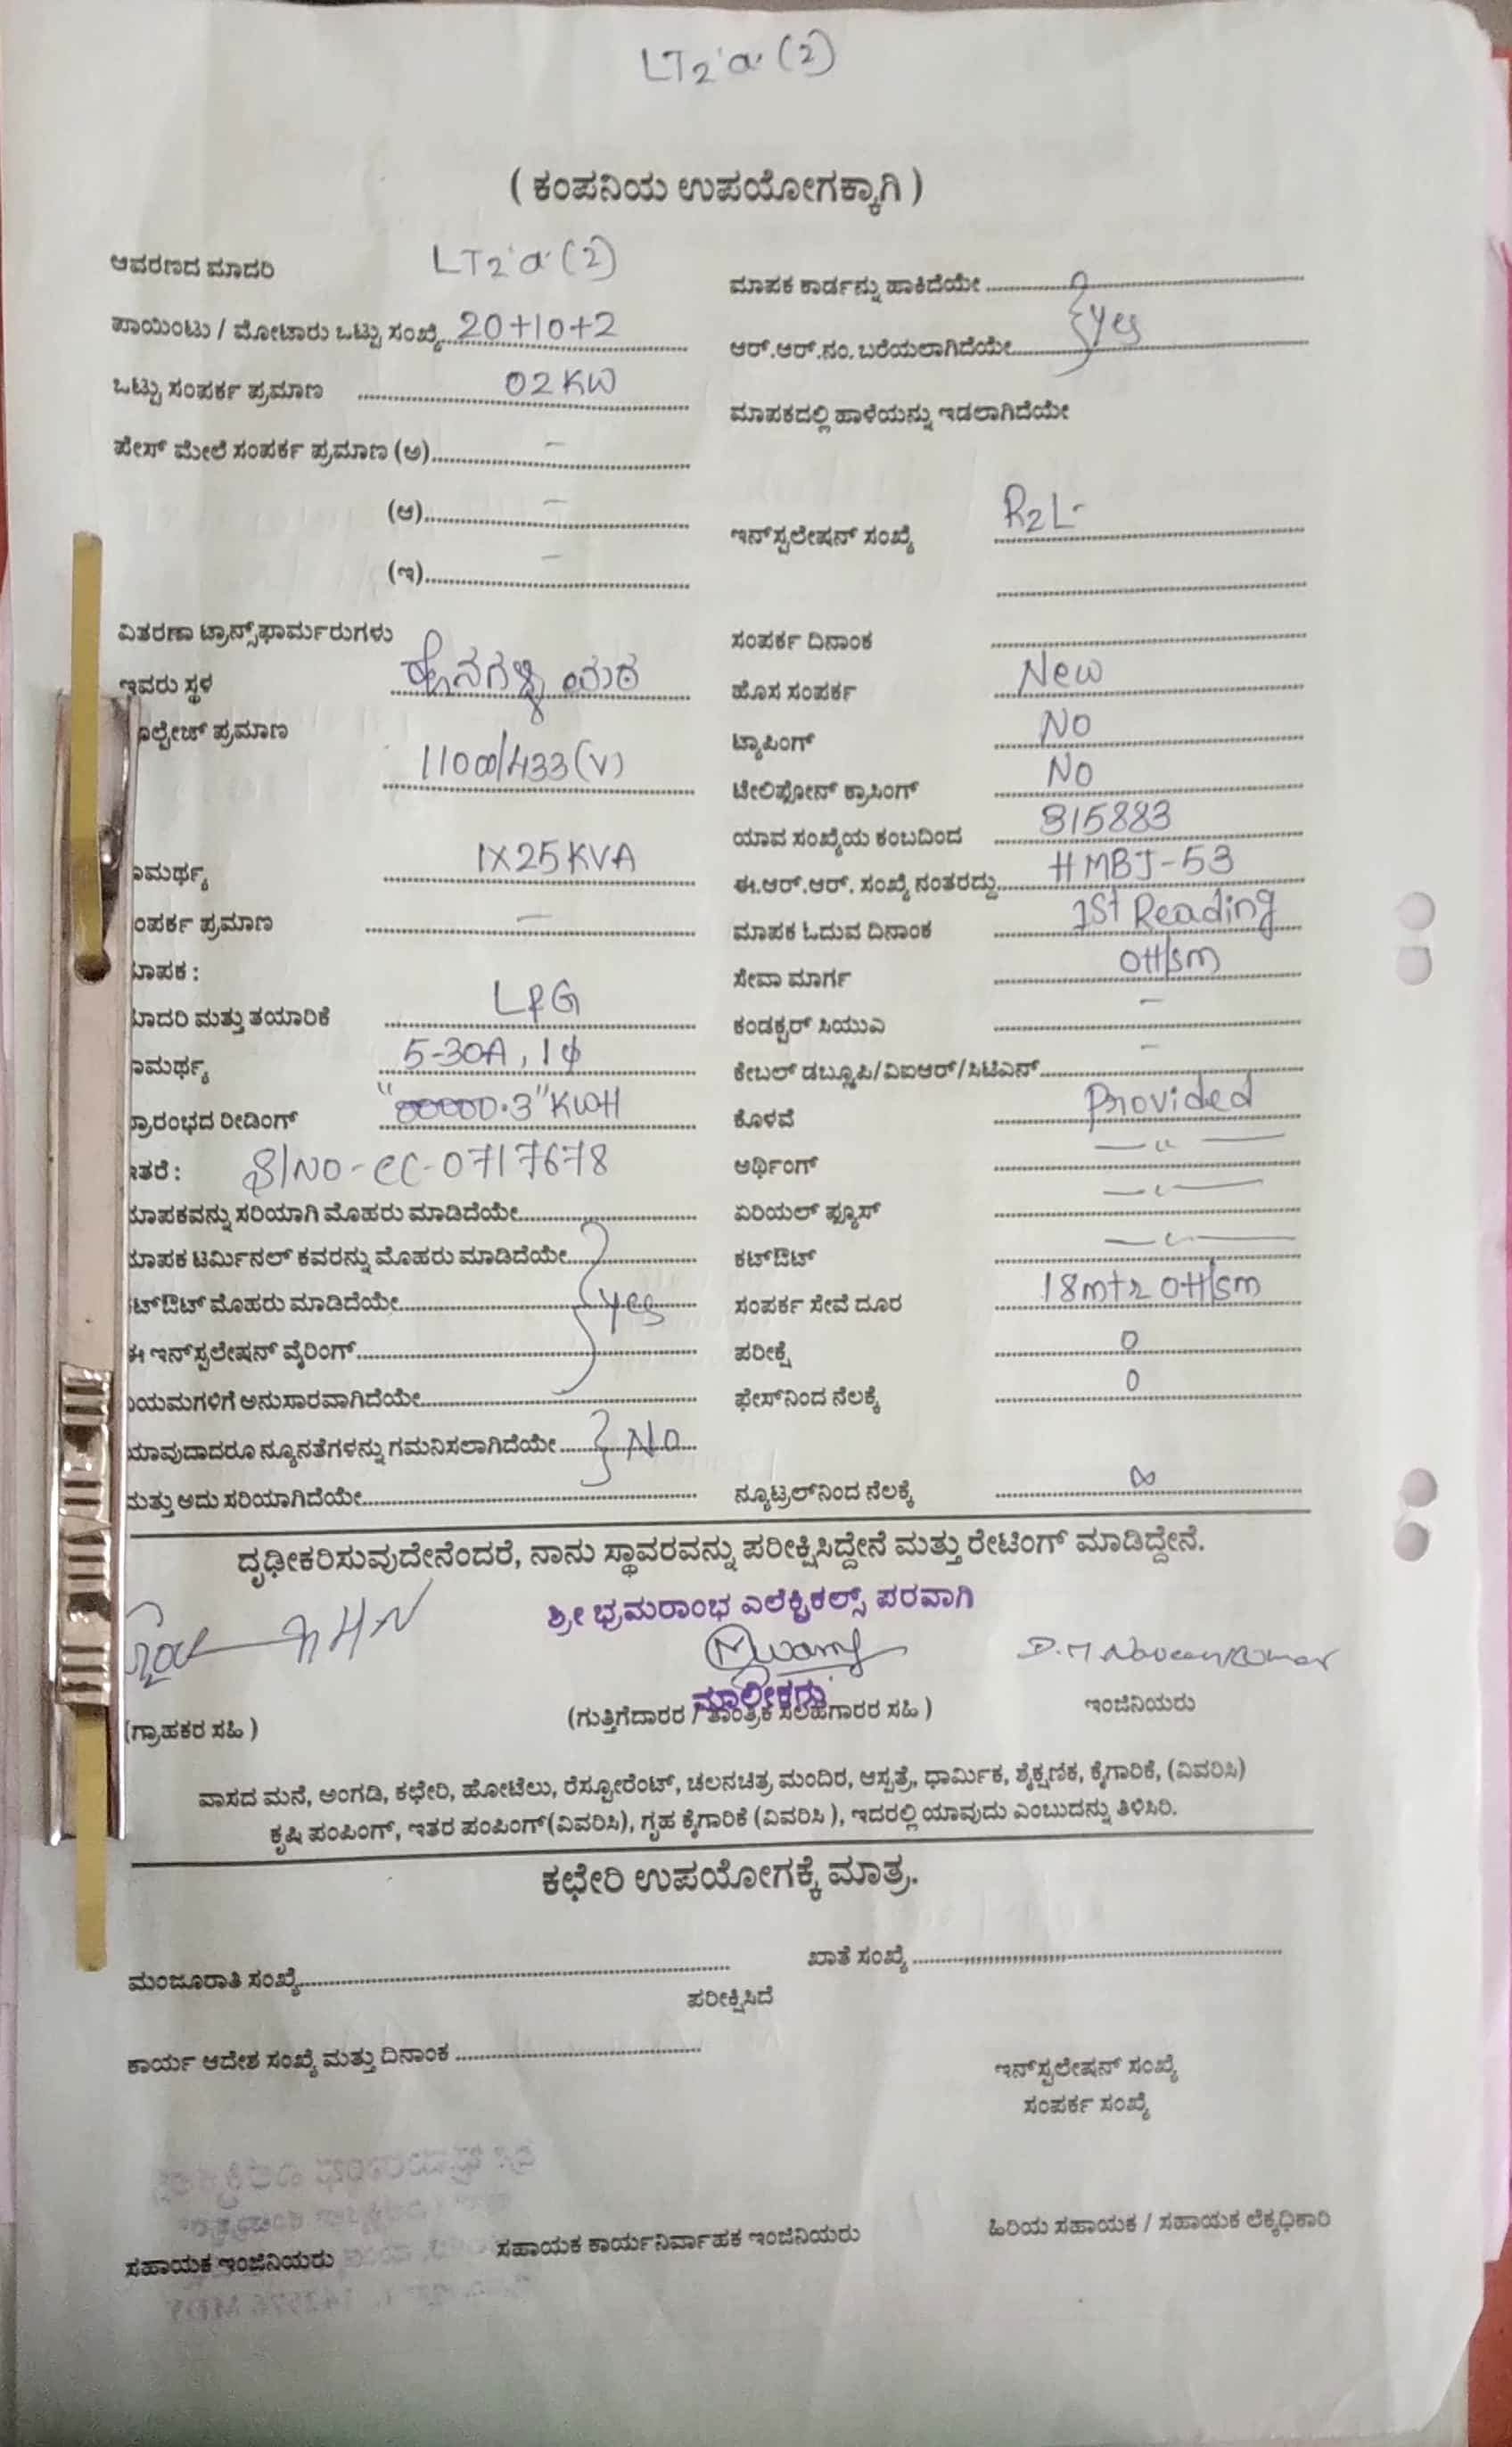 LT2'a'(2)
( ಕಂಪನಿಯ ಉಪಯೋಗಕ್ಕಾಗಿ )
ಆವರಣದ ಮಾದರಿ LT2'a'(2)
ಮಾಪಕ ಕಾರ್ಡನ್ನು ಹಾಕಿದೆಯೇ
ಪಾಯಿಂಟು / ಮೋಟಾರು ಒಟ್ಟು ಸಂಖ್ಯೆ 20+10+2
ಆರ್.ಆರ್.ನಂ. ಬರೆಯಲಾಗಿದೆಯೇ } yes
ಒಟ್ಟು ಸಂಪರ್ಕ ಪ್ರಮಾಣ 02 KW
ಮಾಪಕದಲ್ಲಿ ಹಾಳೆಯನ್ನು ಇಡಲಾಗಿದೆಯೇ
ಫೇಸ್ ಮೇಲೆ ಸಂಪರ್ಕ ಪ್ರಮಾಣ (ಅ) –
(ಆ) –
ಇನ್‌ಸ್ಟಲೇಷನ್ ಸಂಖ್ಯೆ R2L-
(ಇ) –
ವಿತರಣಾ ಟ್ರಾನ್ಸ್‌ಫಾರ್ಮರುಗಳು
ಸಂಪರ್ಕ ದಿನಾಂಕ
ಇವರು ಸ್ಥಳ
ಹೊಸ ಸಂಪರ್ಕ New
ಾಲ್ಟೇಜ್ ಪ್ರಮಾಣ 11000/433(V)
ಟ್ಯಾಪಿಂಗ್ NO
ಟೇಲಿಫೋನ್ ಕ್ರಾಸಿಂಗ್ NO
ಯಾವ ಸಂಖ್ಯೆಯ ಕಂಬದಿಂದ 315883
ಾಮರ್ಥ್ಯ 1X25 KVA
ಈ.ಆರ್.ಆರ್. ಸಂಖ್ಯೆ ನಂತರದ್ದು HMBJ-53
ಂಪರ್ಕ ಪ್ರಮಾಣ –
ಮಾಪಕ ಓದುವ ದಿನಾಂಕ 1st Reading
ಮಾಪಕ :
ಸೇವಾ ಮಾರ್ಗ OH/sm
ಮಾದರಿ ಮತ್ತು ತಯಾರಿಕೆ L&G
ಕಂಡಕ್ಟರ್ ಸಿಯುಎ –
ಾಮರ್ಥ್ಯ 5-30A, 1φ
ಕೇಬಲ್ ಡಬ್ಲ್ಯೂಪಿ/ವಿಐಆರ್/ಸಿಟಿಎನ್ –
ಪ್ರಾರಂಭದ ರೀಡಿಂಗ್ "00000.3" KWH
ಕೊಳವೆ Provided
ಇತರೆ : S/NO-CC-0717678
ಅರ್ಥಿಂಗ್ — " —
ಮಾಪಕವನ್ನು ಸರಿಯಾಗಿ ಮೊಹರು ಮಾಡಿದೆಯೇ
ಏರಿಯಲ್ ಫ್ಯೂಸ್ — " —
ಮಾಪಕ ಟರ್ಮಿನಲ್ ಕವರನ್ನು ಮೊಹರು ಮಾಡಿದೆಯೇ
ಕಟ್‌ಔಟ್ — " —
ಕಟ್‌ಔಟ್ ಮೊಹರು ಮಾಡಿದೆಯೇ } yes
ಸಂಪರ್ಕ ಸೇವೆ ದೂರ 18mtr OH/sm
ಈ ಇನ್‌ಸ್ಟಲೇಷನ್ ವೈರಿಂಗ್
ಪರೀಕ್ಷೆ 0
ನಿಯಮಗಳಿಗೆ ಅನುಸಾರವಾಗಿದೆಯೇ
ಫೇಸ್‌ನಿಂದ ನೆಲಕ್ಕೆ 0
ಯಾವುದಾದರೂ ನ್ಯೂನತೆಗಳನ್ನು ಗಮನಿಸಲಾಗಿದೆಯೇ } No
ಮತ್ತು ಅದು ಸರಿಯಾಗಿದೆಯೇ
ನ್ಯೂಟ್ರಲ್‌ನಿಂದ ನೆಲಕ್ಕೆ ∞
ದೃಢೀಕರಿಸುವುದೇನೆಂದರೆ, ನಾನು ಸ್ಥಾವರವನ್ನು ಪರೀಕ್ಷಿಸಿದ್ದೇನೆ ಮತ್ತು ರೇಟಿಂಗ್ ಮಾಡಿದ್ದೇನೆ.
ಶ್ರೀ ಭ್ರಮರಾಂಭ ಎಲೆಕ್ಟ್ರಿಕಲ್ಸ್ ಪರವಾಗಿ
D.M Naveen Kumar
ಮಾಲೀಕರು
(ಗ್ರಾಹಕರ ಸಹಿ )
(ಗುತ್ತಿಗೆದಾರರ / ತಾಂತ್ರಿಕ ಸಲಹಗಾರರ ಸಹಿ )
ಇಂಜಿನಿಯರು
ವಾಸದ ಮನೆ, ಅಂಗಡಿ, ಕಛೇರಿ, ಹೋಟೆಲು, ರೆಸ್ಟೋರೆಂಟ್, ಚಲನಚಿತ್ರ ಮಂದಿರ, ಆಸ್ಪತ್ರೆ, ಧಾರ್ಮಿಕ, ಶೈಕ್ಷಣಿಕ, ಕೈಗಾರಿಕೆ, (ವಿವರಿಸಿ)
ಕೃಷಿ ಪಂಪಿಂಗ್, ಇತರ ಪಂಪಿಂಗ್(ವಿವರಿಸಿ), ಗೃಹ ಕೈಗಾರಿಕೆ (ವಿವರಿಸಿ ), ಇದರಲ್ಲಿ ಯಾವುದು ಎಂಬುದನ್ನು ತಿಳಿಸಿರಿ.
ಕಛೇರಿ ಉಪಯೋಗಕ್ಕೆ ಮಾತ್ರ.
ಮಂಜೂರಾತಿ ಸಂಖ್ಯೆ
ಖಾತೆ ಸಂಖ್ಯೆ
ಪರೀಕ್ಷಿಸಿದೆ
ಕಾರ್ಯ ಆದೇಶ ಸಂಖ್ಯೆ ಮತ್ತು ದಿನಾಂಕ
ಇನ್‌ಸ್ಟಲೇಷನ್ ಸಂಖ್ಯೆ
ಸಂಪರ್ಕ ಸಂಖ್ಯೆ
ಸಹಾಯಕ ಇಂಜಿನಿಯರು
ಸಹಾಯಕ ಕಾರ್ಯನಿರ್ವಾಹಕ ಇಂಜಿನಿಯರು
ಹಿರಿಯ ಸಹಾಯಕ / ಸಹಾಯಕ ಲೆಕ್ಕಧಿಕಾರಿ